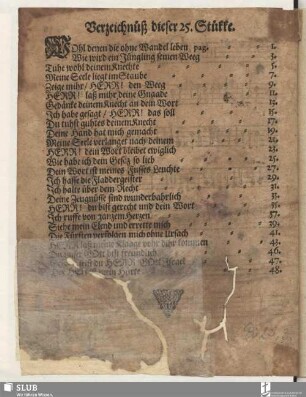 Verzeichnüß dieser 25. Stükke.
WOhl denen die ohne Wandel leben pag. 1.
Wie wird ein Jüngling seinen Weeg 3.
Tuhe wohl deinem Knechte 5.
Meine Seele liegt im Staube 7.
Zeige mihr / HERR! den Weeg 9.
HERR / laß mihr deine Gnade 11.
Gedänke deinem Knecht an dein Wort 13.
Ich habe gesagt / HERR! das soll 15.
Du tuhst guhtes deinem Knecht 17.
Deine Hand hat mich gemacht 19.
Meine Seele verlanget nach deinem 21.
HERR! dein Wort bleibet ewiglich 23.
Wie habe ich dein Gesetz so lieb 25.
Dein Wort ist meines Fusses Leuchte 27.
Ich hasse die Fladdergeister 29.
Ich halte über dem Recht 31.
Deine Zeugnüsse sind wunderbahrlich 33.
HERR! du bist gerecht und dein Wort 35.
Ich ruffe von ganzem Herzen 37.
Siehe mein Elend und errette mich 39.
Die Fürsten verfolgen mich ohne Ursach 41.
HERR laß meine Klage vohr dihr kommen 43.
Gott ist freundlich 46.
HERR GOtt Israel 47.
48.
SLUB
Wir führen Wissen.